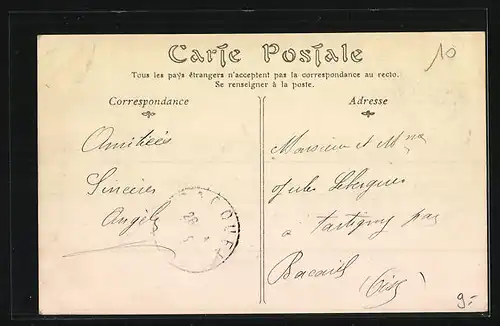 Carte Postale
10
Tous les pays étrangers n'acceptent pas la correspondance au recto.
Se renseigner à la poste.
Correspondance
Adresse
Amitiées
Sincères
Angèle
Monsieur et Mme
Jules
à Tartigny par
Bacouël
(Oise)
9.-